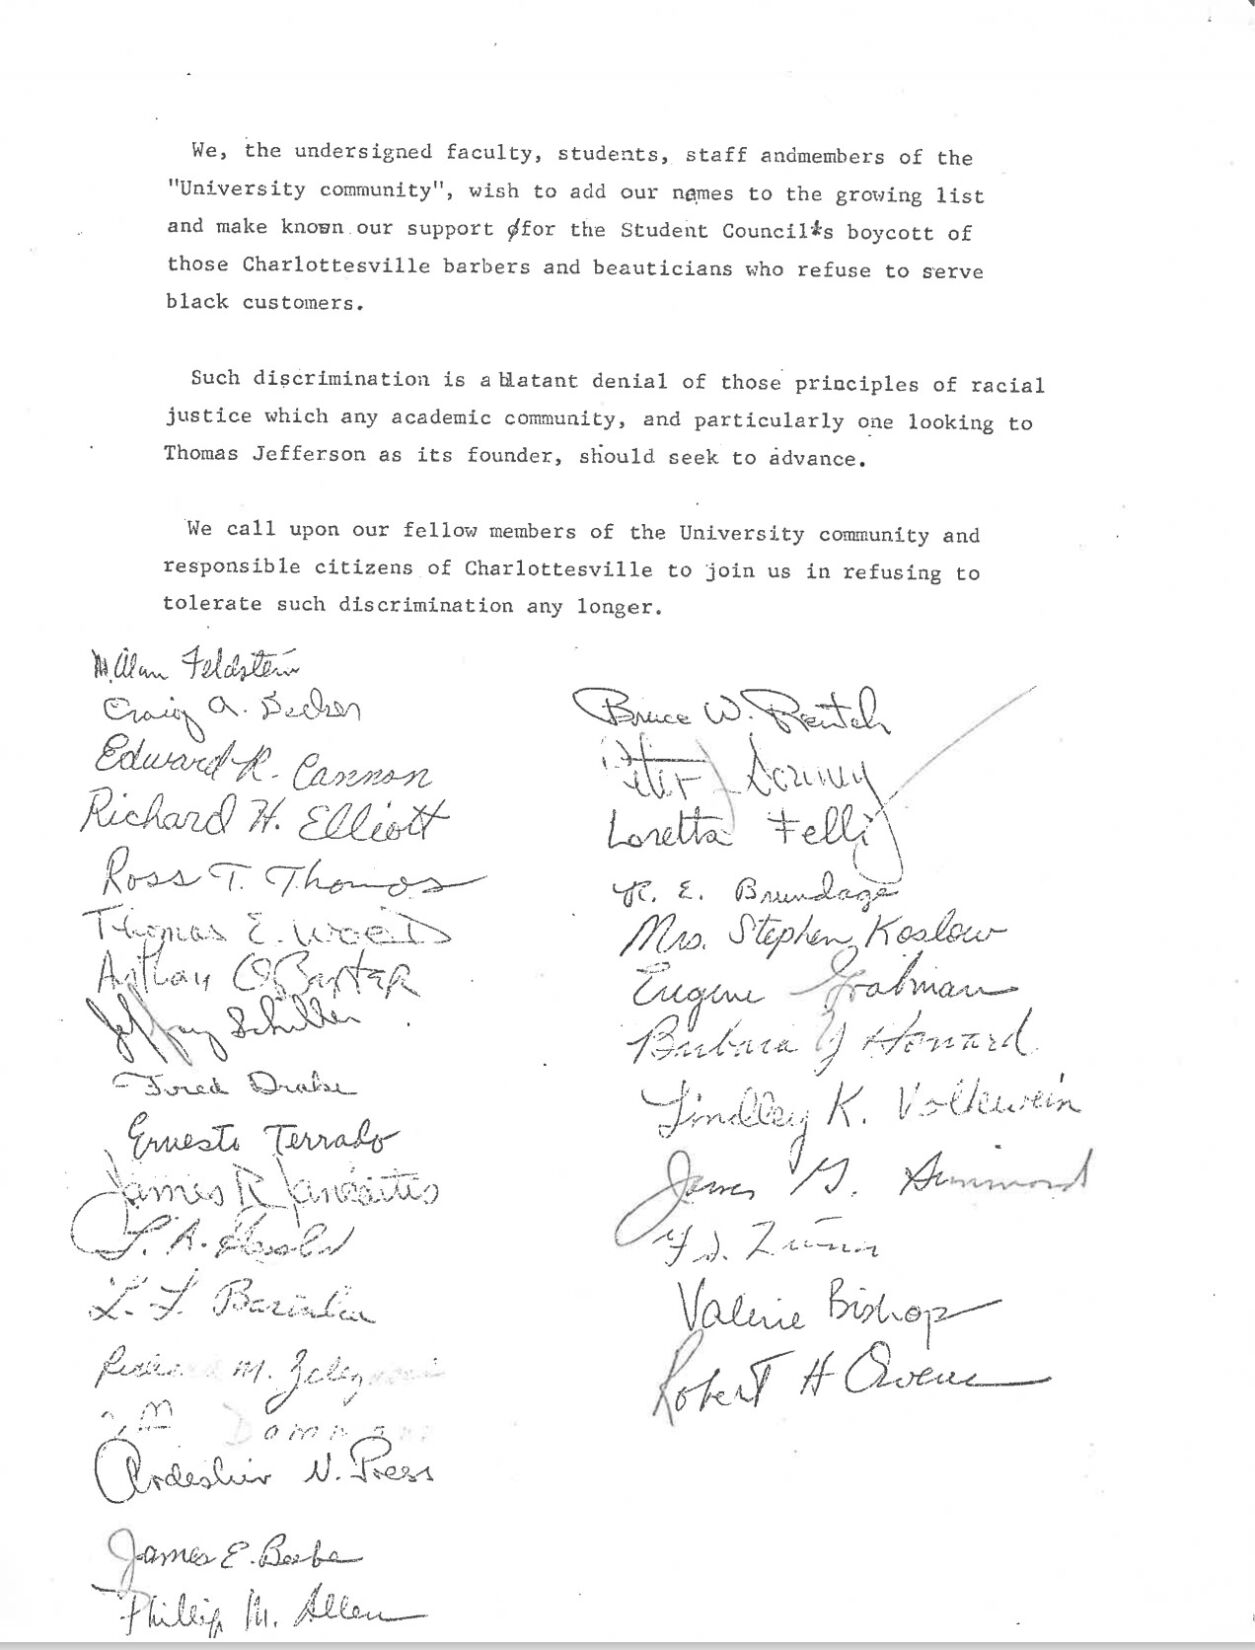 We, the undersigned faculty, students, staff andmembers of the
"University community", wish to add our names to the growing list
and make known our support for the Student Council's boycott of
those Charlottesville barbers and beauticians who refuse to serve
black customers.
Such discrimination is a blatant denial of those principles of racial
justice which any academic community, and particularly one looking to
Thomas Jefferson as its founder, should seek to advance.
We call upon our fellow members of the University community and
responsible citizens of Charlottesville to join us in refusing to
tolerate such discrimination any longer.
M. Alan Feldstein
Craig A. Decker
Edward R. Cannon
Richard H. Elliott
Ross T. Thomas
Thomas E. Wood
Baxter
Jeffrey Schiller
Fred Drake
Ernesto Terrado
James R. Jancaitis
L. A.
L. F.
M.
Ardeshir N. Press
James E. Beebe
Phillip M. Allen
Bruce W. Rentch
Peter J
Loretta Felli
R. E. Brundage
Mrs. Stephen Koslow
Eugene Grabman
Barbara Y Howard
Lindley K. Volkwein
James G. Simmonds
Valerie Bishop
Robert H Owens